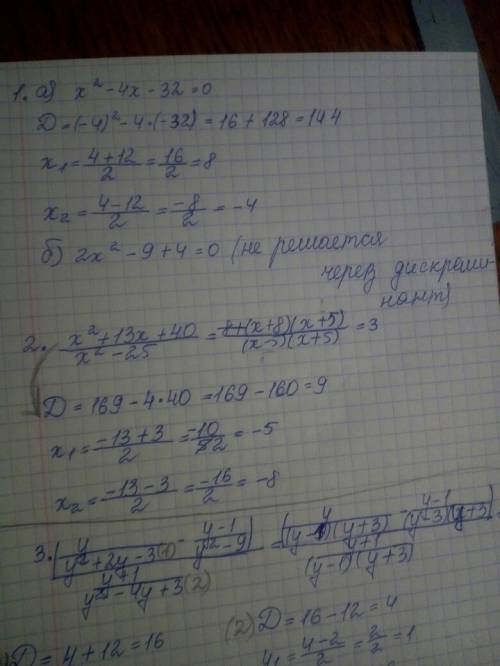 1. а) x² - 4x - 32 = 0
D = (-4)² - 4·(-32) = 16 + 128 = 144
x₁ = (4+12)/2 = 16/2 = 8
x₂ = (4-12)/2 = -8/2 = -4
б) 2x² - 9 + 4 = 0 (не решается
через дискрими-
нант)
2. (x² + 13x + 40)/(x² - 25) = ((x+8)(x+5))/((x-5)(x+5)) = 3
D = 169 - 4·40 = 169 - 160 = 9
x₁ = (-13+3)/2 = -10/2 = -5
x₂ = (-13-3)/2 = -16/2 = -8
3. [y/(y² + 2y - 3) (1) - (y-1)/(y² - 9)] / ((y+1)/(y² - 4y + 3) (2)) = [y/((y-1)(y+3)) - (y-1)/((y-3)(y+3))] / ((y+1)/((y-1)(y+3)))
D = 4 + 12 = 16
(2) D = 16 - 12 = 4
y₁ = (4-2)/2 = 2/2 = 1